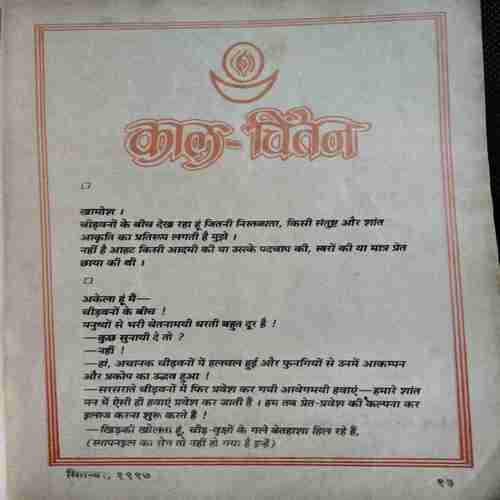 काल-चिंतन
खामोश ।
चीड़वनों के बीच देख रहा हूं जितनी निस्तब्धता, किसी संतुष्ट और शांत
आकृति का प्रतिरूप लगती है मुझे ।
नहीं है आहट किसी आदमी की या उसके पदचाप की, स्वरों की या मात्र प्रेत
छाया की भी ।
अकेला हूं मैं—
चीड़वनों के बीच !
मनुष्यों से भरी चेतनामयी धरती बहुत दूर है !
—कुछ सुनायी दे तो ?
—नहीं !
—हां, अचानक चीड़वनों में हलचल हुई और फुनगियों से उनमें आकम्पन
और प्रकोप का उद्भव हुआ !
—सरसराते चीड़वनों में फिर प्रवेश कर गयी आवेगमयी हवाएं—हमारे शांत
मन में ऐसी ही हवाएं प्रवेश कर जाती हैं । हम तब प्रेत-प्रवेश की कल्पना कर
इलाज करना शुरू करते हैं !
—खिड़की खोलता हूं, चीड़-वृक्षों के गले बेतहाशा हिल रहे हैं,
(स्पाण्डल का रोग तो नहीं हो गया है इन्हें)
सितम्बर, १९९७
१३